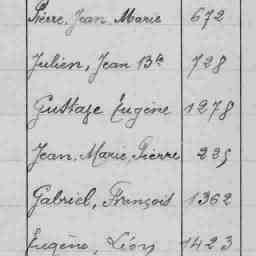 Pierre, Jean Marie 672
Julien, Jean Bte 728
Gustave Eugène 1278
Jean, Marie, Pierre 235
Gabriel, François 1362
Eugène, Léon 1423